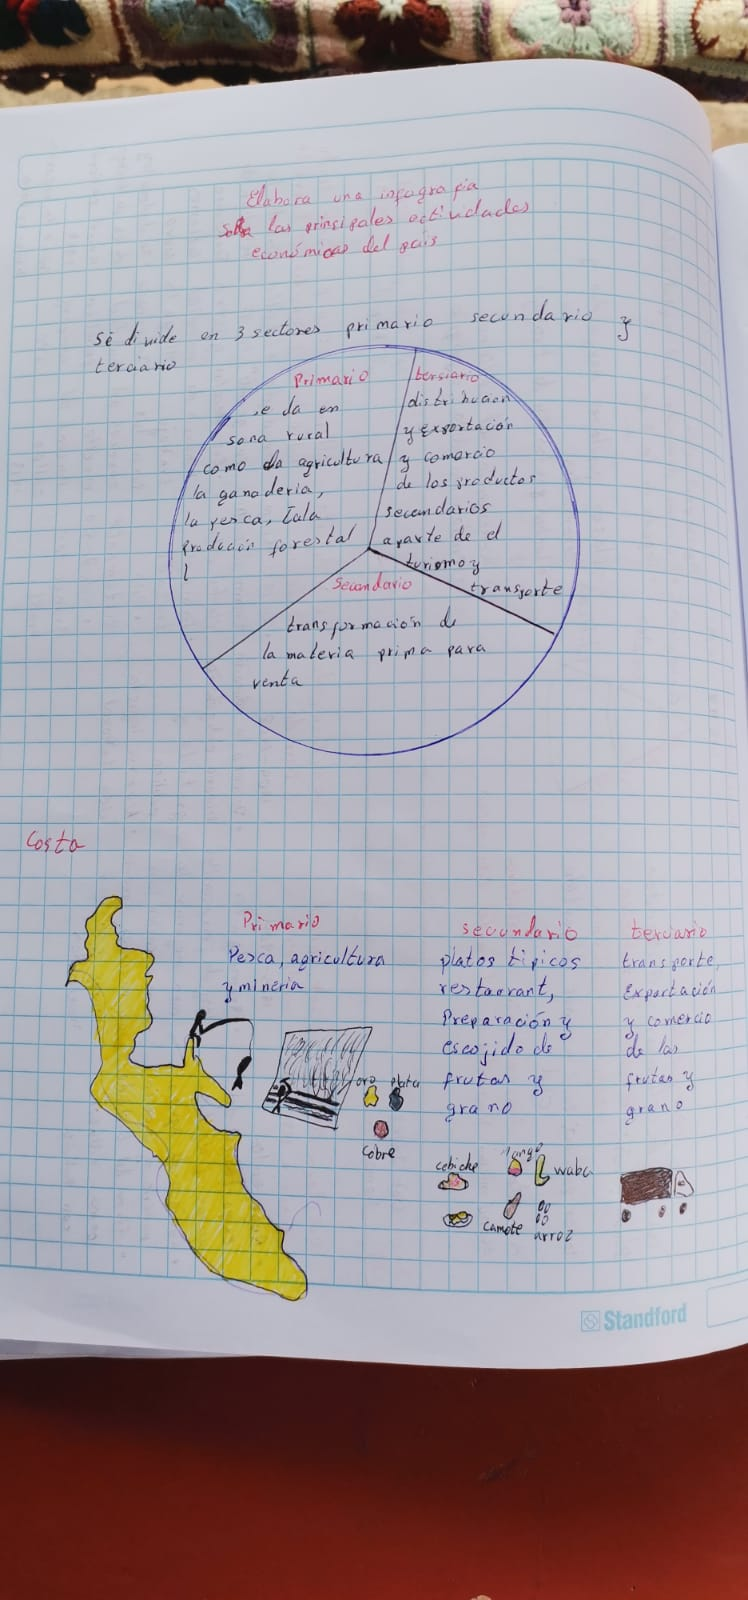 Elabora una infografia
Sobre las prinsipales actividades
económicas del país
Se divide en 3 sectores primario secundario y
terciario
Primario
e da en
sona rural
como da agricultura
la ganaderia,
la pesca, Tala
Producion forestal
tersiario
distribucion
y exportación
y comercio
de los productos
secundarios
aparte de el
turismo y
transporte
Secundario
transformación de
la materia prima para
venta
Costa
Primario
Pesca, agricultura
y mineria
oro
plata
cobre
secundario
platos tipicos
restaurant,
Preparación y
escojido de
frutas y
grano
cebiche
mango
waba
camote
arroz
terciario
transporte,
Exportación
y comercio
de las
frutas y
grano
Standford